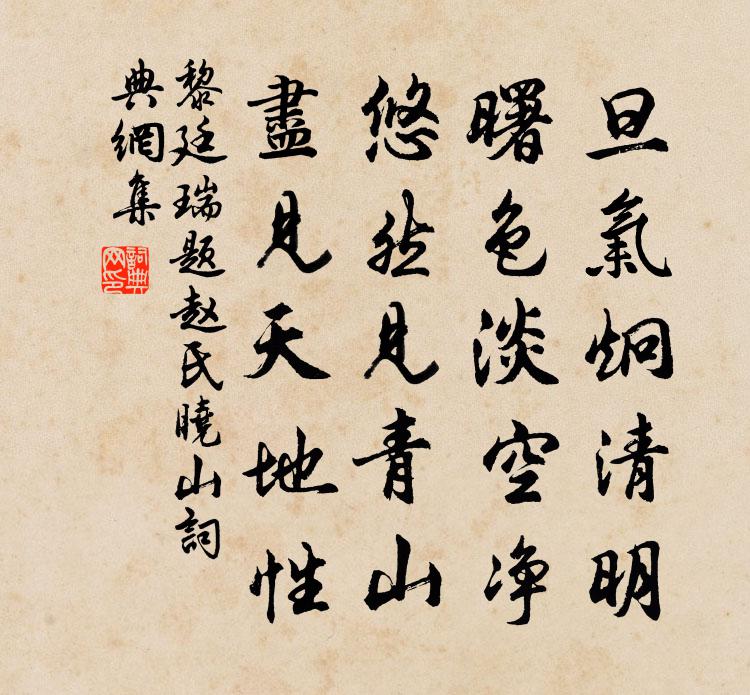 旦氣炯清明
曙色淡空净
悠然見青山
盡見天地性
黎廷瑞題赵氏曉山詞
典網集
詞典
网印